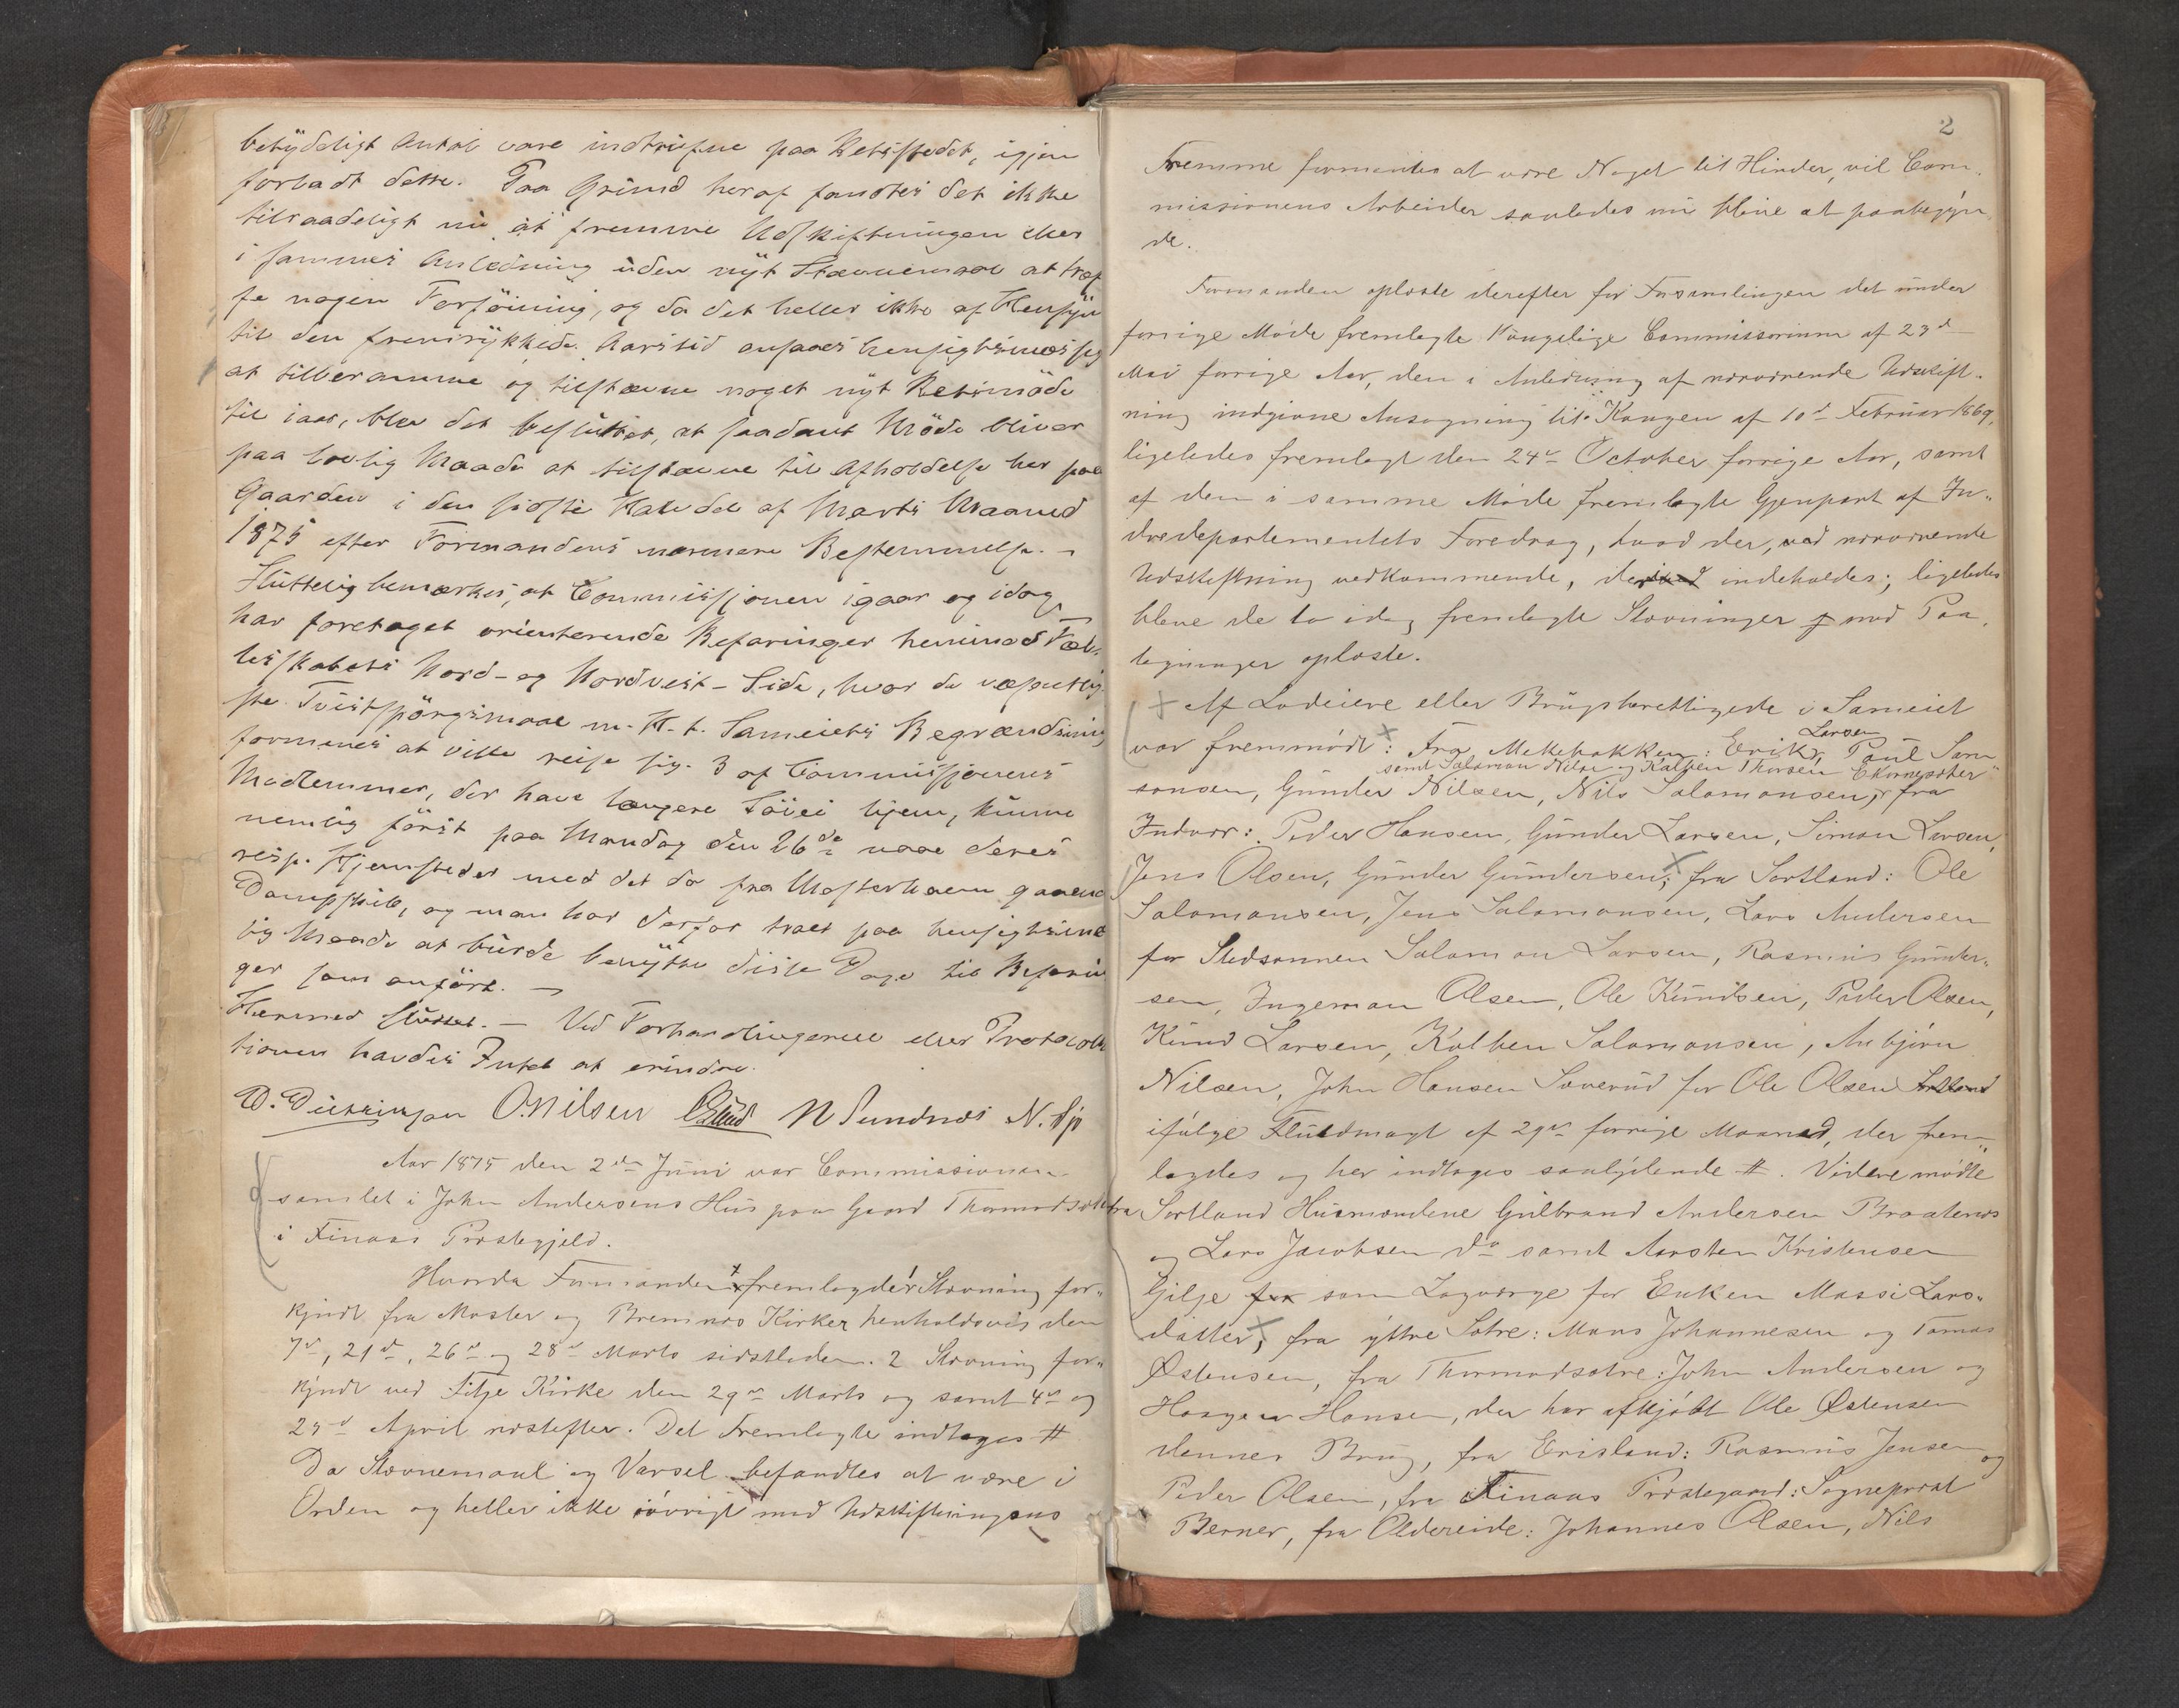 betydeligt Antal vare indtrufne paa Retsstedet, igjen
forladt dette. Paa Grund heraf fandtes det ikke
tilraadeligt nu at fremme Udskiftningen eller
i sammes Anledning uden nyt Stævnemaal at træf
fe nogen Forføining, og da det heller ikke af Hensyn
til den fremrykkede Aarstid ansaaes hensigtsmæssig
at tilberamme og tilstævne noget nyt Retsmøde
til iaar, blev det besluttet, at saadant Møde bliver
paa lovlig Maade at tilstævne til Afholdelse her paa
Gaarden i den sidste Halvdel af Marts Maaned
1875 efter Formandens nærmere Bestemmelse. –
Sluttelig bemærkes, at Commissjonen igaar og idag
har foretaget orienterende Befaringer henimod Fæl-
lesskabets Nord- og Nordvest-Side, hvor de væsentlig-
ste Tvistspörgsmaal m. H. t. Sameiets Begrændsning
formenes at ville reise sig. 3 af Commissjonens
Medlemmer, der have længere Söiei hjem, kunne
nemlig först paa Mandag den 26de naae deres
resp. Hjemsteder med det da fra Mosterhavn gaaend
Dampskib, og man har derfor troet paa hensigtsmæ
sig Maade at burde benytte disse Dage til Befarin
ger som anfört. –
Hermed sluttet. – Ved Forhandlingerne eller Protocolla
tionen havdes Intet at erindre.
O. Nilsen N Sundnæs N.
Aar 1875 den 2den Juni var Commissionen
samlet i John Andersens Hus paa Gaard Thormodsætre
i Finaas Præstegjeld.
Hvorda Formanden fremlagde 1 Stævning for-
kyndt fra Moster og Bremnes Kirker henholdsvis den
7de, 21de, 26de og 28de Marts sidstleden. 2 Stævning for-
kyndt ved Fitje Kirke den 29de Marts og samt 4de og
25de April næstefter. Det Fremlagte indtages #
Da Stævnemaal og Varsel befandtes at være i
Orden og heller ikke iøvrigt mod Udskiftningens
2
Fremme formentes at være Noget til Hinder, vil Com-
missionens Arbeider saaledes nu blive at paabegyn-
de.
Formanden oplæste derefter for Forsamlingen det under
forrige Møde fremlagte Kongelige Commissorium af 23de
Mai forrige Aar, den i Anledning af nærværende Udskift-
ning indgivne Ansøgning til Kongen af 10de Februar 1869,
ligeledes fremlagt den 24de October forrige Aar, samt
af den i samme Møde fremlagte Gjenpart af In-
dredepartementets Foredrag, hvad der, ved nærværende
Udskiftning vedkommende, deri indeholdes; ligeledes
bleve de to idag fremlagte Stævninger med Paa-
tegninger oplæste.
Af Lodeiere eller Brugsberettigede i Sameiet
Larsen
var fremmødt: Fra Mekebakken: Erik, Paul Sam
samt Salamon Nilsen og Kolben Thorsen Ekornesæter
sonsen, Gunder Nilsen, Nils Salamonsen, fra
Indvær: Peder Hansen, Gunder Larsen, Simon Larsen,
Jens Olsen, Gunder Gundersen; fra Sortland: Ole
Salamonsen, Jens Salamonsen, Lars Andersen
for Stedsønnen Salamon Larsen, Rasmus Gunder-
sen, Ingeman Olsen, Ole Knudsen, Peder Olsen,
Knud Larsen, Kolben Salamonsen, Anbjørn
Nilsen, John Hansen Sæverud for Ole Olsen Sortland
ifølge Fuldmagt af 29de forrige Maaned, der frem-
lagdes og her indtages saalydende #. Videre mødte
fra Sortland Husmændene Gulbrand Andersen Braatenes
og Lars Jacobsen do samt Aarsten Kristensen
Gilje for som Lagværge for Enken Massi Lars-
datter, fra yttre Sætre: Mons Johannesen og Tomas
Østensen, fra Thormodsætre: John Andersen og
Haagen Hansen, der har afkjøbt Ole Østensen
dennes Brug, fra Erisland: Rasmus Jensen og
Peder Olsen, fra Finaas Præstegaard: Sogneprest
Berner, fra Oldereide: Johannes Olsen, Nils